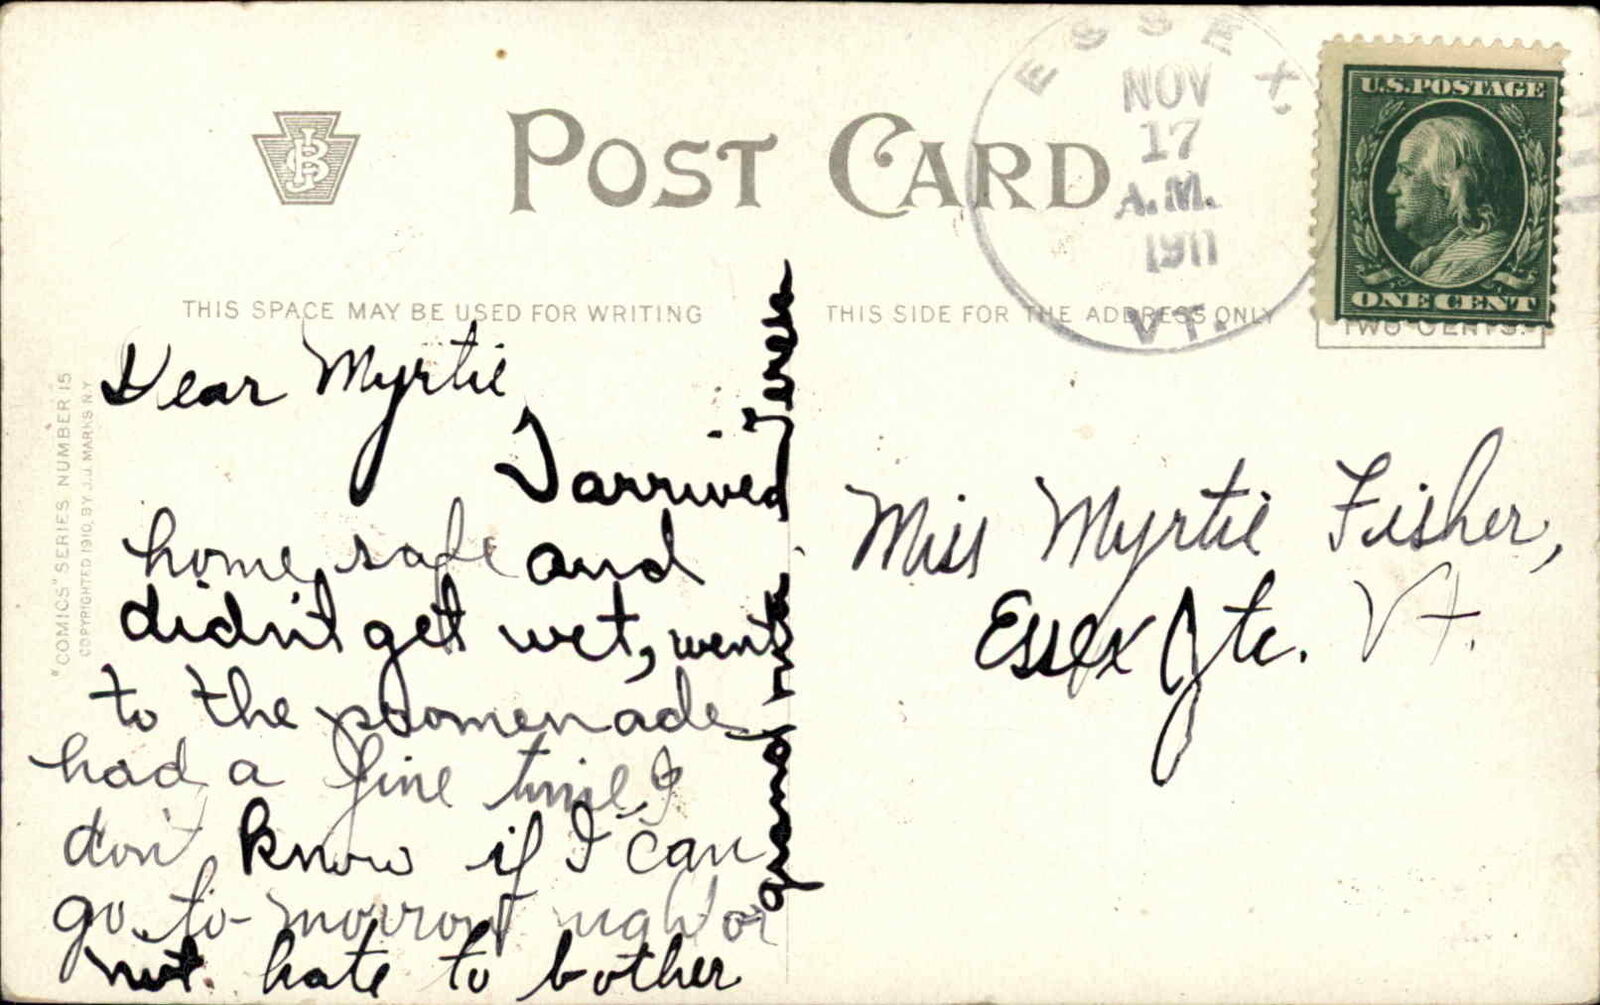 POST CARD
THIS SPACE MAY BE USED FOR WRITING
THIS SIDE FOR THE ADDRESS ONLY
ESSEX,
NOV
17
A.M.
1911
VT.
U.S.POSTAGE
ONE CENT
TWO CENTS.
JB
"COMICS" SERIES NUMBER 15
COPYRIGHTED 1910, BY J.J. MARKS N.Y.
Dear Myrtie
I arrived
home safe and
didn't get wet, went
to the promenade
had a fine time, I
don't know if I can
go to-morrow night or
not hate to bother
grand
Miss Myrtie Fisher,
Essex Jtc. Vt.